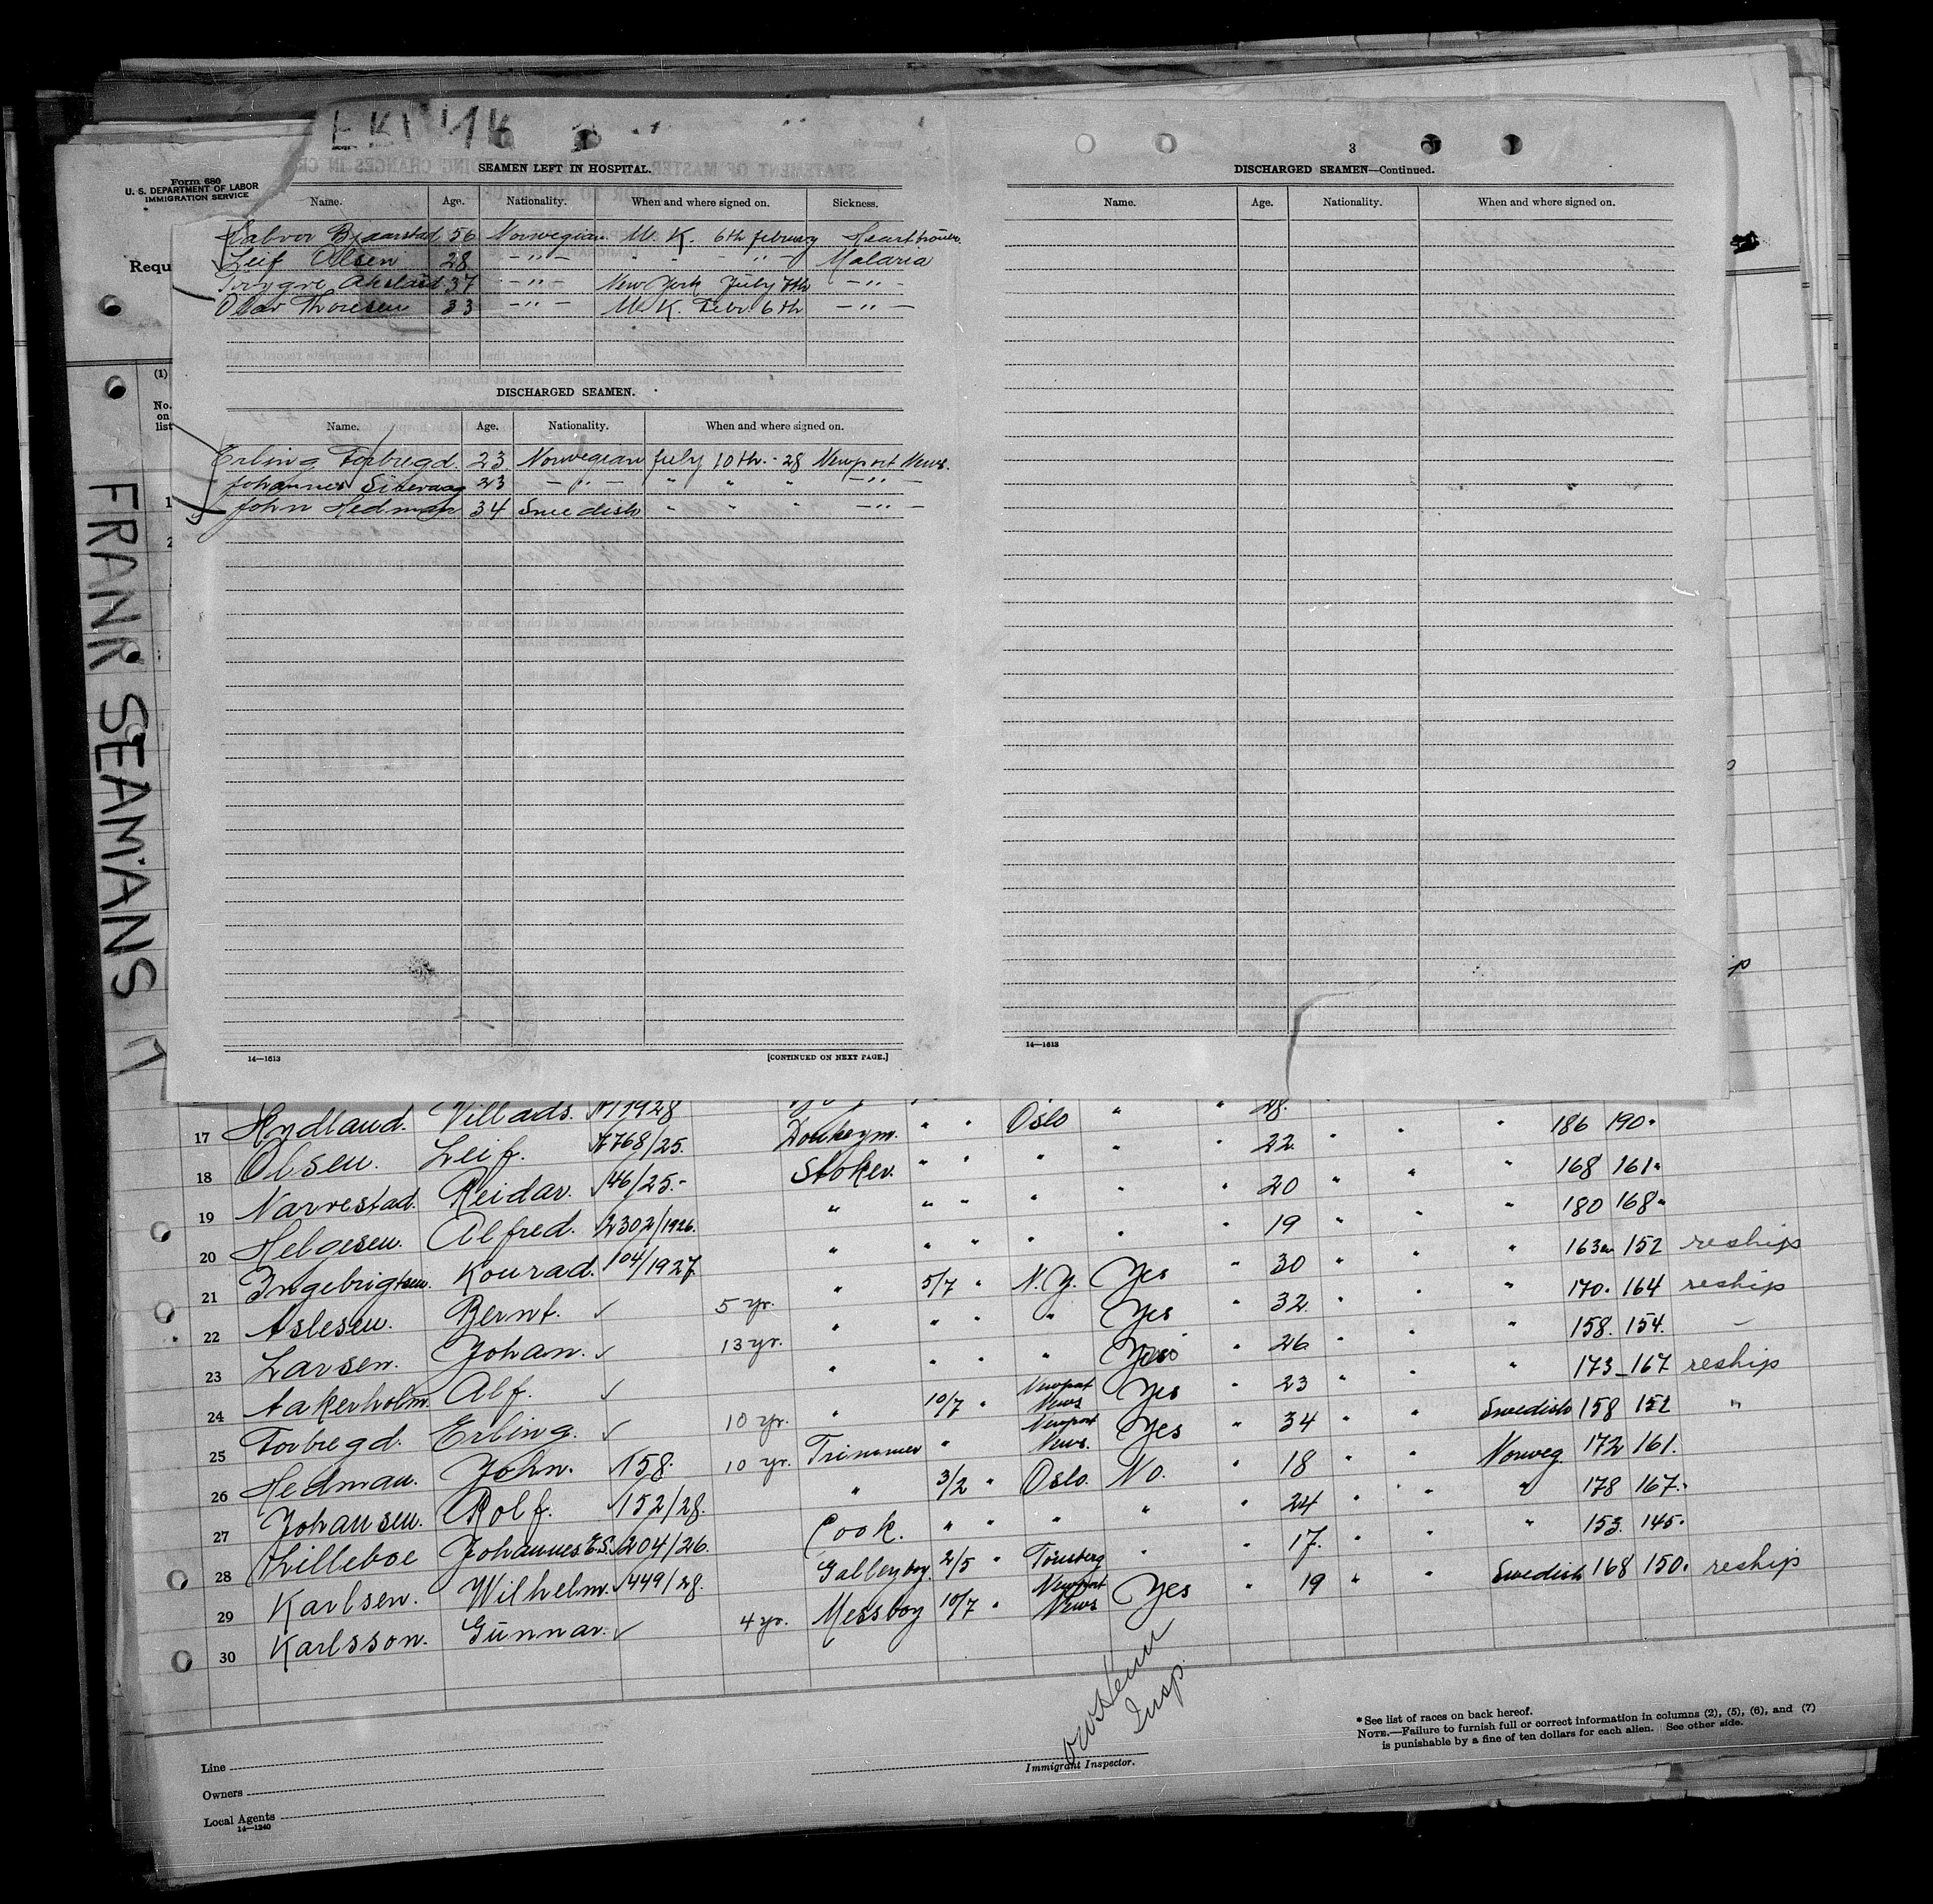 Form 680
U. S. DEPARTMENT OF LABOR
IMMIGRATION SERVICE
Requ
(1)
No.
on
list
FRANK SEAMANS
SEAMEN LEFT IN HOSPITAL.
Name. Age. Nationality. When and where signed on. Sickness.
Halvor Bjaarstad 56 Norwegian U. K. 6th february
Leif Olsen 28 -"- - - - " - Malaria
Trygve 37 -"- New York July 7th -"-
Olav Thoresen 33 -"- U. K. Febr. 6th -"-
DISCHARGED SEAMEN.
Name. Age. Nationality. When and where signed on.
Erling Forbregd 23 Norwegian July 10th - 28 Newport News.
Johannes 23 -"- " " " -"-
John Hedman 34 Swedish " " " -"-
14—1613 [CONTINUED ON NEXT PAGE.]
3
DISCHARGED SEAMEN—Continued.
Name. Age. Nationality. When and where signed on.
14—1613
17 Hydland. Villads. 1/1928 Donkeym. " " Oslo " " 28.
18 Olsen. Leif. 768/25. Stoker. " " " " " 22. " " " 186 190.
19 Narvestad. Reidar. 46/25.- " " " " " " 20 " " " 168 161.
20 Helgesen. Alfred. 2302/1926. " " " " " " 19 " " " 180 168.
21 Ingebrigtsen. Konrad. 104/1927 " 5/7 " N.Y. Yes " 30 " " " 163 152 reship
22 Aslesen. Bernt. ✓ 5 yr. " " " " Yes " 32. " " " 170. 164 reship
23 Larsen. Johan. ✓ 13 yr. " " " " Yes " 26 " " " 158. 154. –
24 Aakerholm. Alf. ✓ " 10/7 " Newport News Yes " 23 " " " 173 – 167 reship
25 Forbregd. Erling. ✓ 10 yr. Trimmer " Newport News. Yes " 34 " " Swedish 158 152 "
26 Hedman. John. ✓ 158. 10 yr. " 3/2 " Oslo. No. " 18 " " Norweg. 172 161.
27 Johansen. Rolf. 152/28. Cook. " " " " " 24 " " " 178 167.
28 Lilleboe Johannes E.S. 204/26. Galleyboy. 2/5 " Tönsberg " " 17. " " " 153. 145.
29 Karlsen. Wilhelm. 449/28. Messboy 10/7 " Newport News Yes " 19 " " Swedish 168 150. reship
30 Karlsson. Gunnar. ✓ 4 yr.
Insp.
Line
Owners
Local Agents
14—1240
Immigrant Inspector.
* See list of races on back hereof.
NOTE.—Failure to furnish full or correct information in columns (2), (5), (6), and (7)
is punishable by a fine of ten dollars for each alien. See other side.